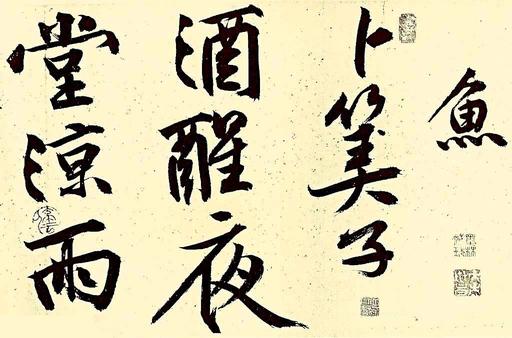 魚
卜算子
酒醒夜
堂涼雨